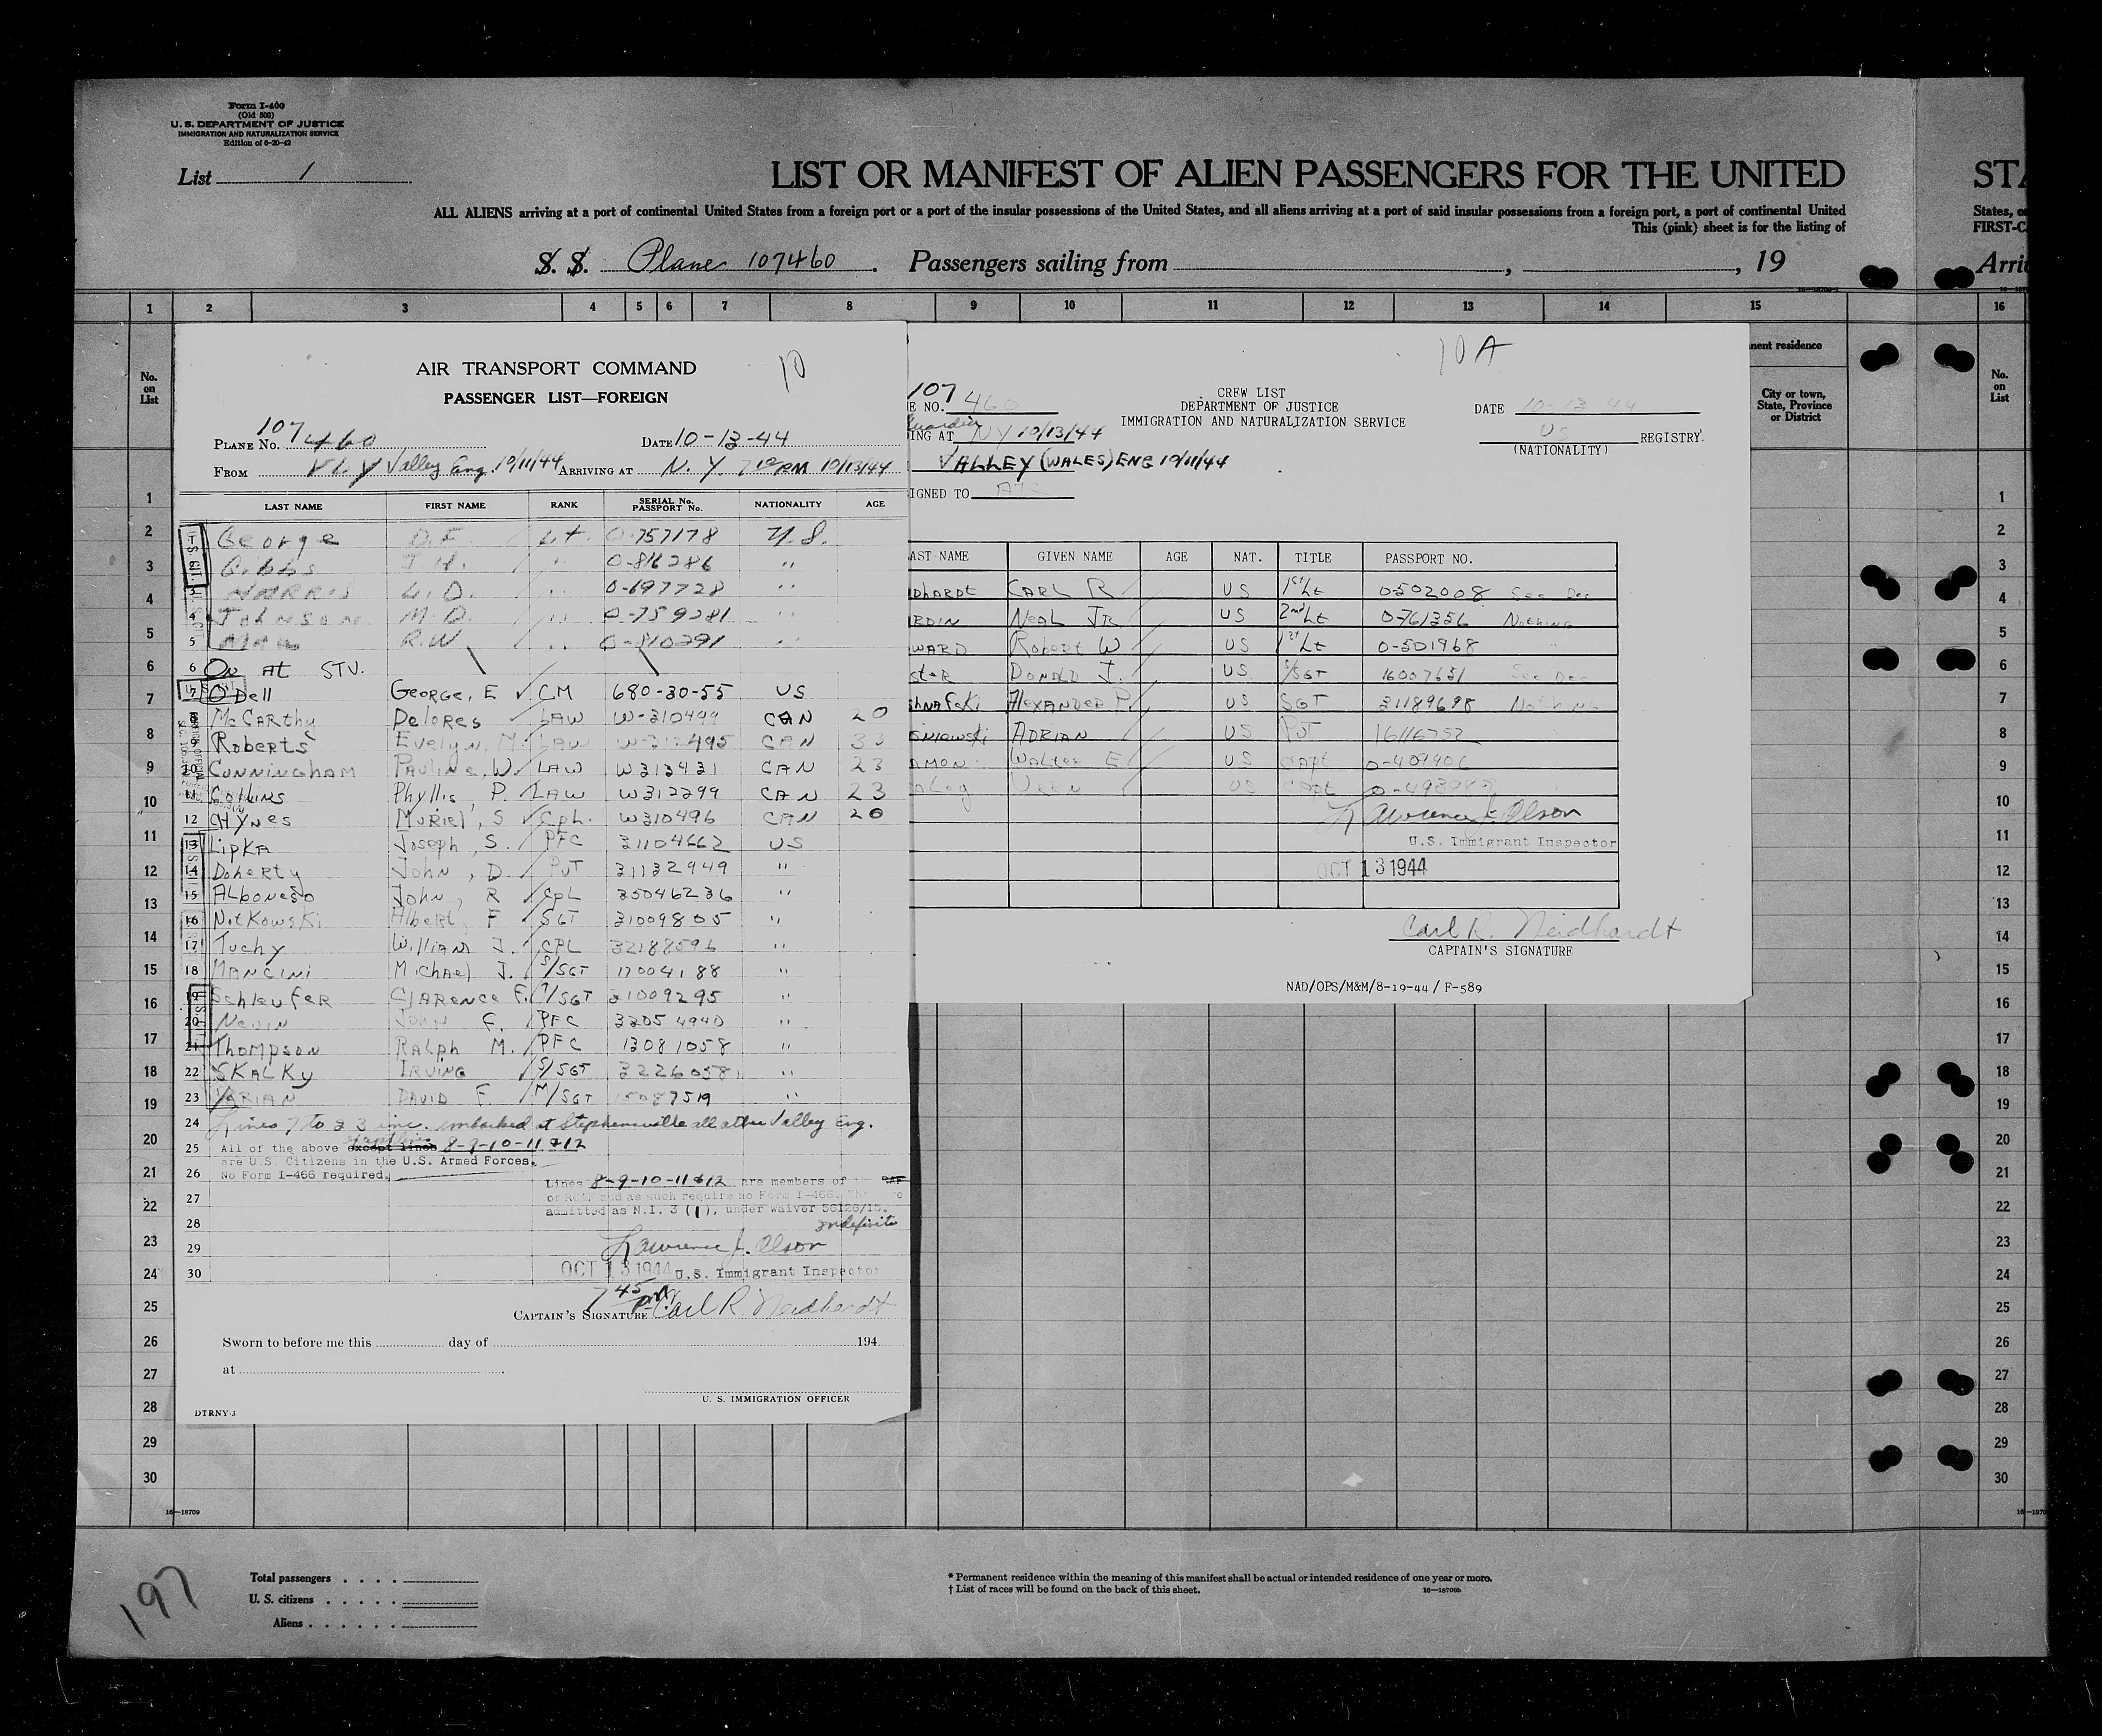 Form I-400
(Old 500)
U. S. DEPARTMENT OF JUSTICE
IMMIGRATION AND NATURALIZATION SERVICE
Edition of 6-20-42
List 1
LIST OR MANIFEST OF ALIEN PASSENGERS FOR THE UNITED
ALL ALIENS arriving at a port of continental United States from a foreign port or a port of the insular possessions of the United States, and all aliens arriving at a port of said insular possessions from a foreign port, a port of continental United
This (pink) sheet is for the listing of
S. S. Plane 107460 . Passengers sailing from , , 19
STA
States, o
FIRST-C
Arri
1 2 3 4 5 6 7 8 9 10 11 12 13 14 15 16
No. on List
nent residence
City or town, State, Province or District
No. on List
AIR TRANSPORT COMMAND
10
PASSENGER LIST—FOREIGN
PLANE NO. 107460 DATE 10-13-44
FROM Valley Eng. 10/11/44 ARRIVING AT N. Y. 7 10 PM 10/13/44
LAST NAME FIRST NAME RANK SERIAL No. PASSPORT No. NATIONALITY AGE
George D.F. Lt. 0-757178 U.S.
J.H. " 0-816286 "
HARRIS L.D. " 0-697728 "
4 Johnson M.D. " 0-759281 "
5 R.W " 0-810391 "
6 ON AT STV.
7 O'Dell George, E CM 680-30-55 US
8 McCarthy Delores LAW W-310499 CAN 20
9 Roberts Evelyn, M. LAW W-312495 CAN 33
10 CUNNINGHAM Pauline, W. LAW W313431 CAN 23
11 Collins Phyllis, P. LAW W312299 CAN 23
12 Hynes Muriel, S Cpl. W310496 CAN 20
13 Lipka Joseph, S. PFC 31104662 US
14 Doherty John, D PVT 31132949 "
15 Alboneso John, R CpL 35046236 "
16 Notkowski Albert, F SGT 31009805 "
17 Tuchy William J. CPL 32188596 "
18 MANCINI Michael J. S/SGT 17004188 "
19 Schleufer CLARENCE F. T/SGT 31009295 "
20 Nevin John F. PFC 32054940 "
21 Thompson Ralph M. PFC 13081058 "
22 SKALKY IRVING S/SGT 32260581 "
23 VARIAN DAVID F. M/SGT 15087519 "
24 Lines 7 to 23 inc. embarked at Stephensville all other Valley Eng.
25 All of the above except lines 8-9-10-11&12
are U.S. Citizens in the U.S. Armed Forces.
26 No Form I-466 required.
Lines 8-9-10-11&12 are members of
27 and as such require no Form I-466.
admitted as N.I. 3 (1), under waiver 56126/15.
28 Indefinite
29 Lawrence J. Olson
30 OCT 13 1944 U.S. Immigrant Inspector
7 45 PM
CAPTAIN'S SIGNATURE Carl R Neidhardt
Sworn to before me this day of 194
at
U. S. IMMIGRATION OFFICER
DTRNY-3
10A
107
E NO. 460
CREW LIST
DEPARTMENT OF JUSTICE
IMMIGRATION AND NATURALIZATION SERVICE
DATE 10-13-44
ING AT NY 10/13/44
US REGISTRY
(NATIONALITY)
VALLEY (WALES) ENG 10/11/44
IGNED TO ATC
AST NAME GIVEN NAME AGE NAT. TITLE PASSPORT NO.
DHARDT CARL R US 1st Lt 0-502008 See Dec
RDIN NEAL JR US 2nd Lt 0-761356 Nothing
WARD Robert W US 1st Lt 0-501968 "
STER DONALD J. US S/SGT 16007651 See Dec
HNAFSKI ALEXANDER P. US SGT 31189698 Nothing
SNIEWSKI ADRIAN US PVT 16116752
AMON Walter E US CAPT 0-409906
US CAPT
Lawrence J. Olson
U.S. Immigrant Inspector
OCT 13 1944
Carl R. Neidhardt
CAPTAIN'S SIGNATURE
NAD/OPS/M&M/8-19-44 / F-589
1
2
3
4
5
6
7
8
9
10
11
12
13
14
15
16
17
18
19
20
21
22
23
24
25
26
27
28
29
30
16—18709
197
Total passengers . . . .
U. S. citizens . . . . .
Aliens . . . . . .
* Permanent residence within the meaning of this manifest shall be actual or intended residence of one year or more.
† List of races will be found on the back of this sheet.
16—18709b